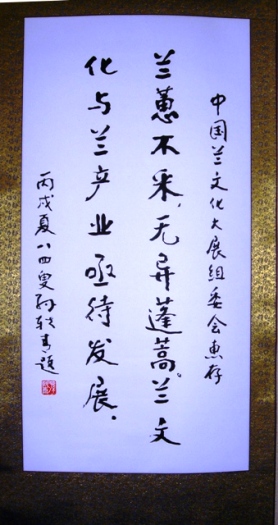 中国兰文化大展组委会惠存
兰蕙不采,无异蓬蒿。兰文
化与兰产业亟待发展.
丙戌夏八四叟孙轶青题